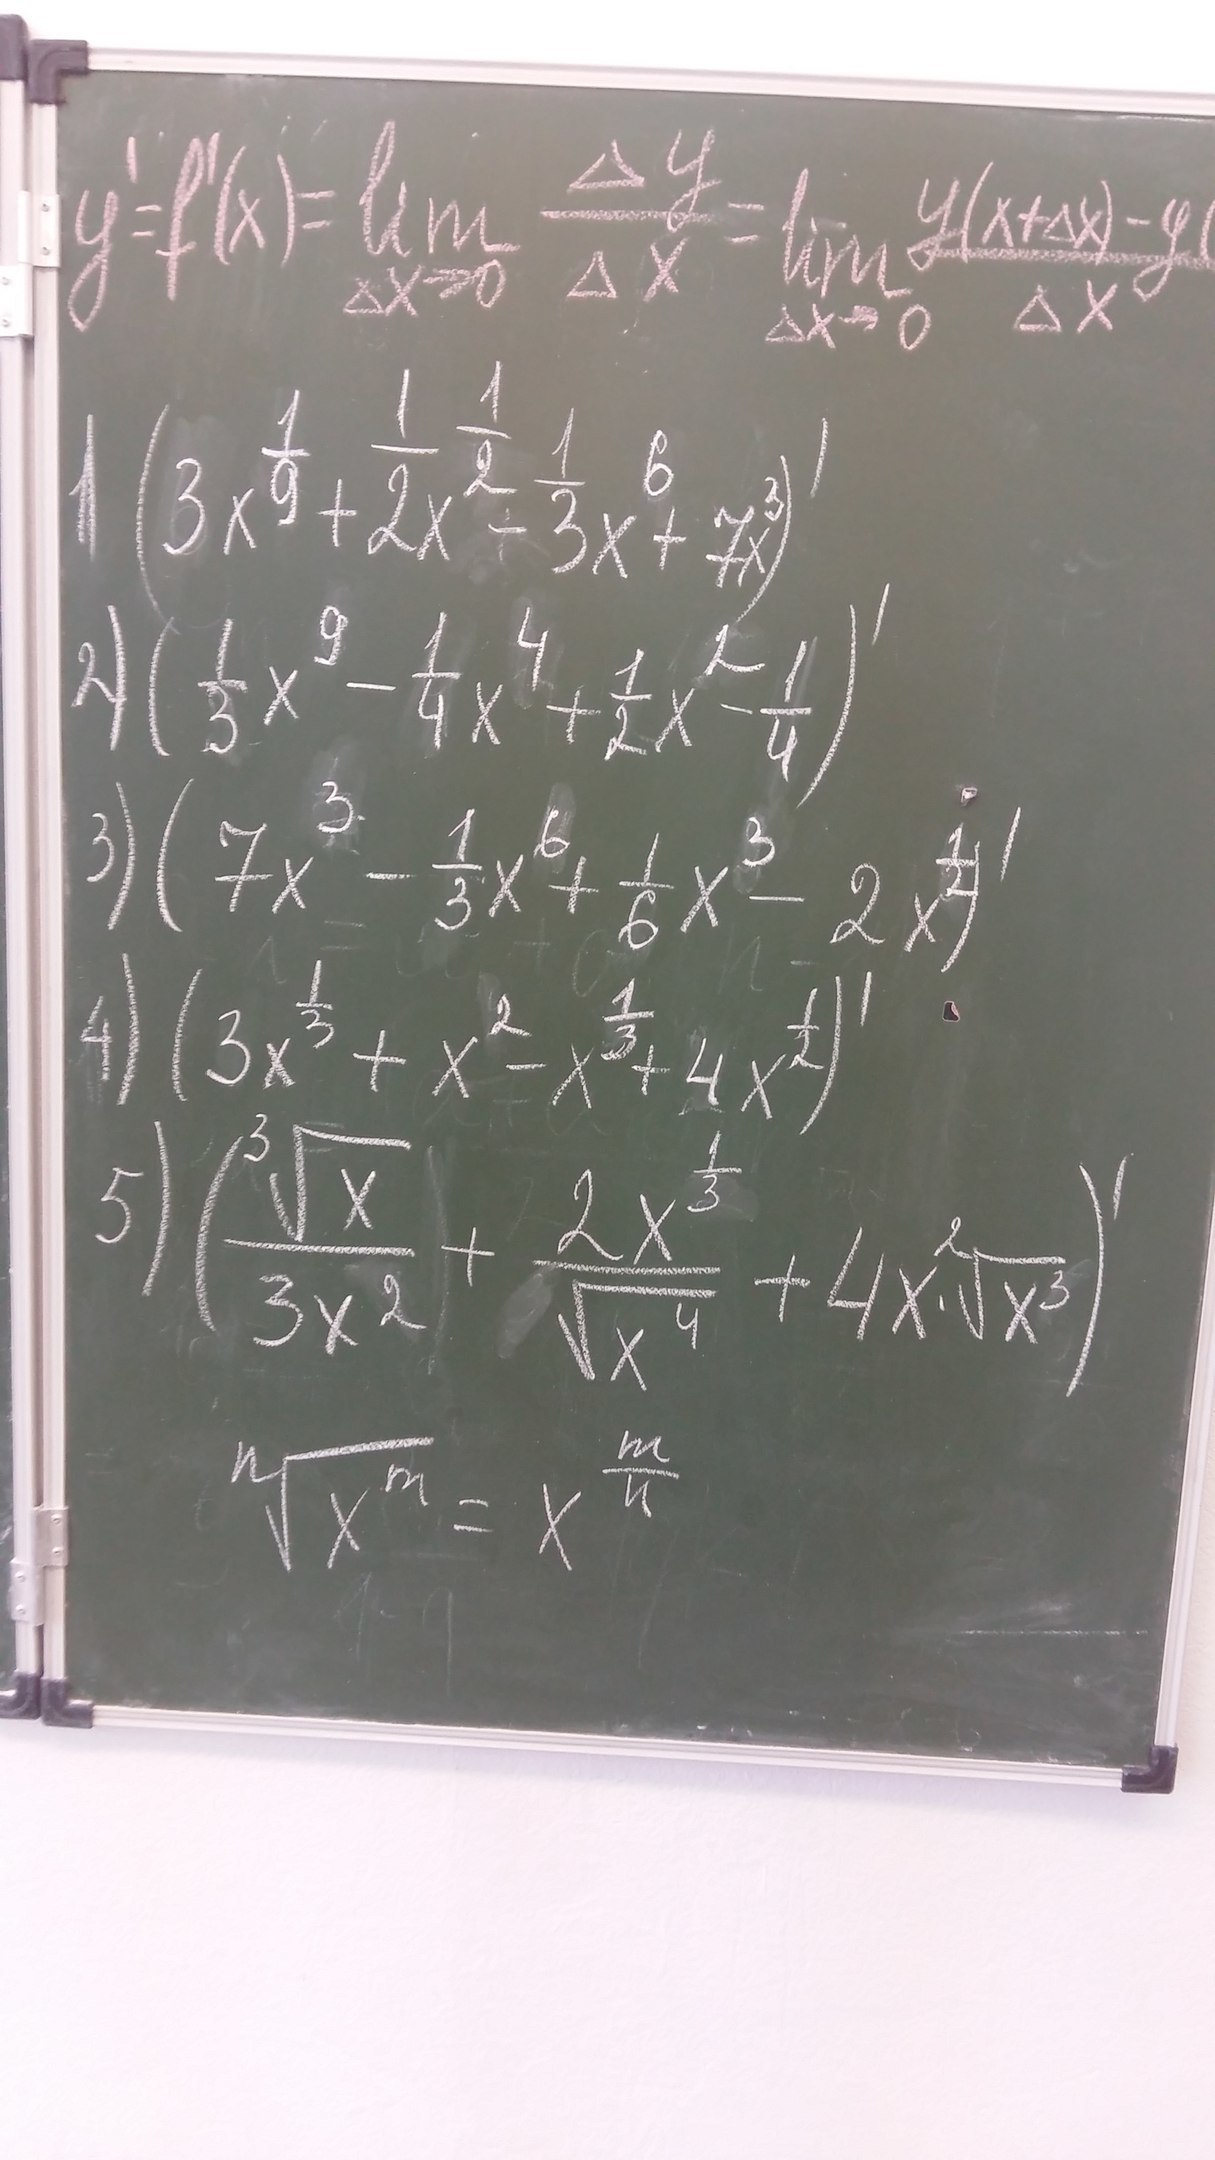 y' = f'(x) = lim_{Δx→0} Δy/Δx = lim_{Δx→0} (y(x+Δx) - y(/Δx
1 (3x^{1/9} + 1/2 x^{1/2} - 1/3 x^6 + 7x^3)'
2) (1/3 x^9 - 1/4 x^4 + 1/2 x^2 - 1/4)'
3) (7x^3 - 1/3 x^6 + 1/6 x^3 - 2x^{1/2})'
4) (3x^{1/3} + x^2 - x^{1/3} + 4x^{1/2})'
5) (∛x/3x^2 + 2x^{1/3}/√x^4 + 4x·²√x^3)'
ⁿ√x^m = x^{m/n}